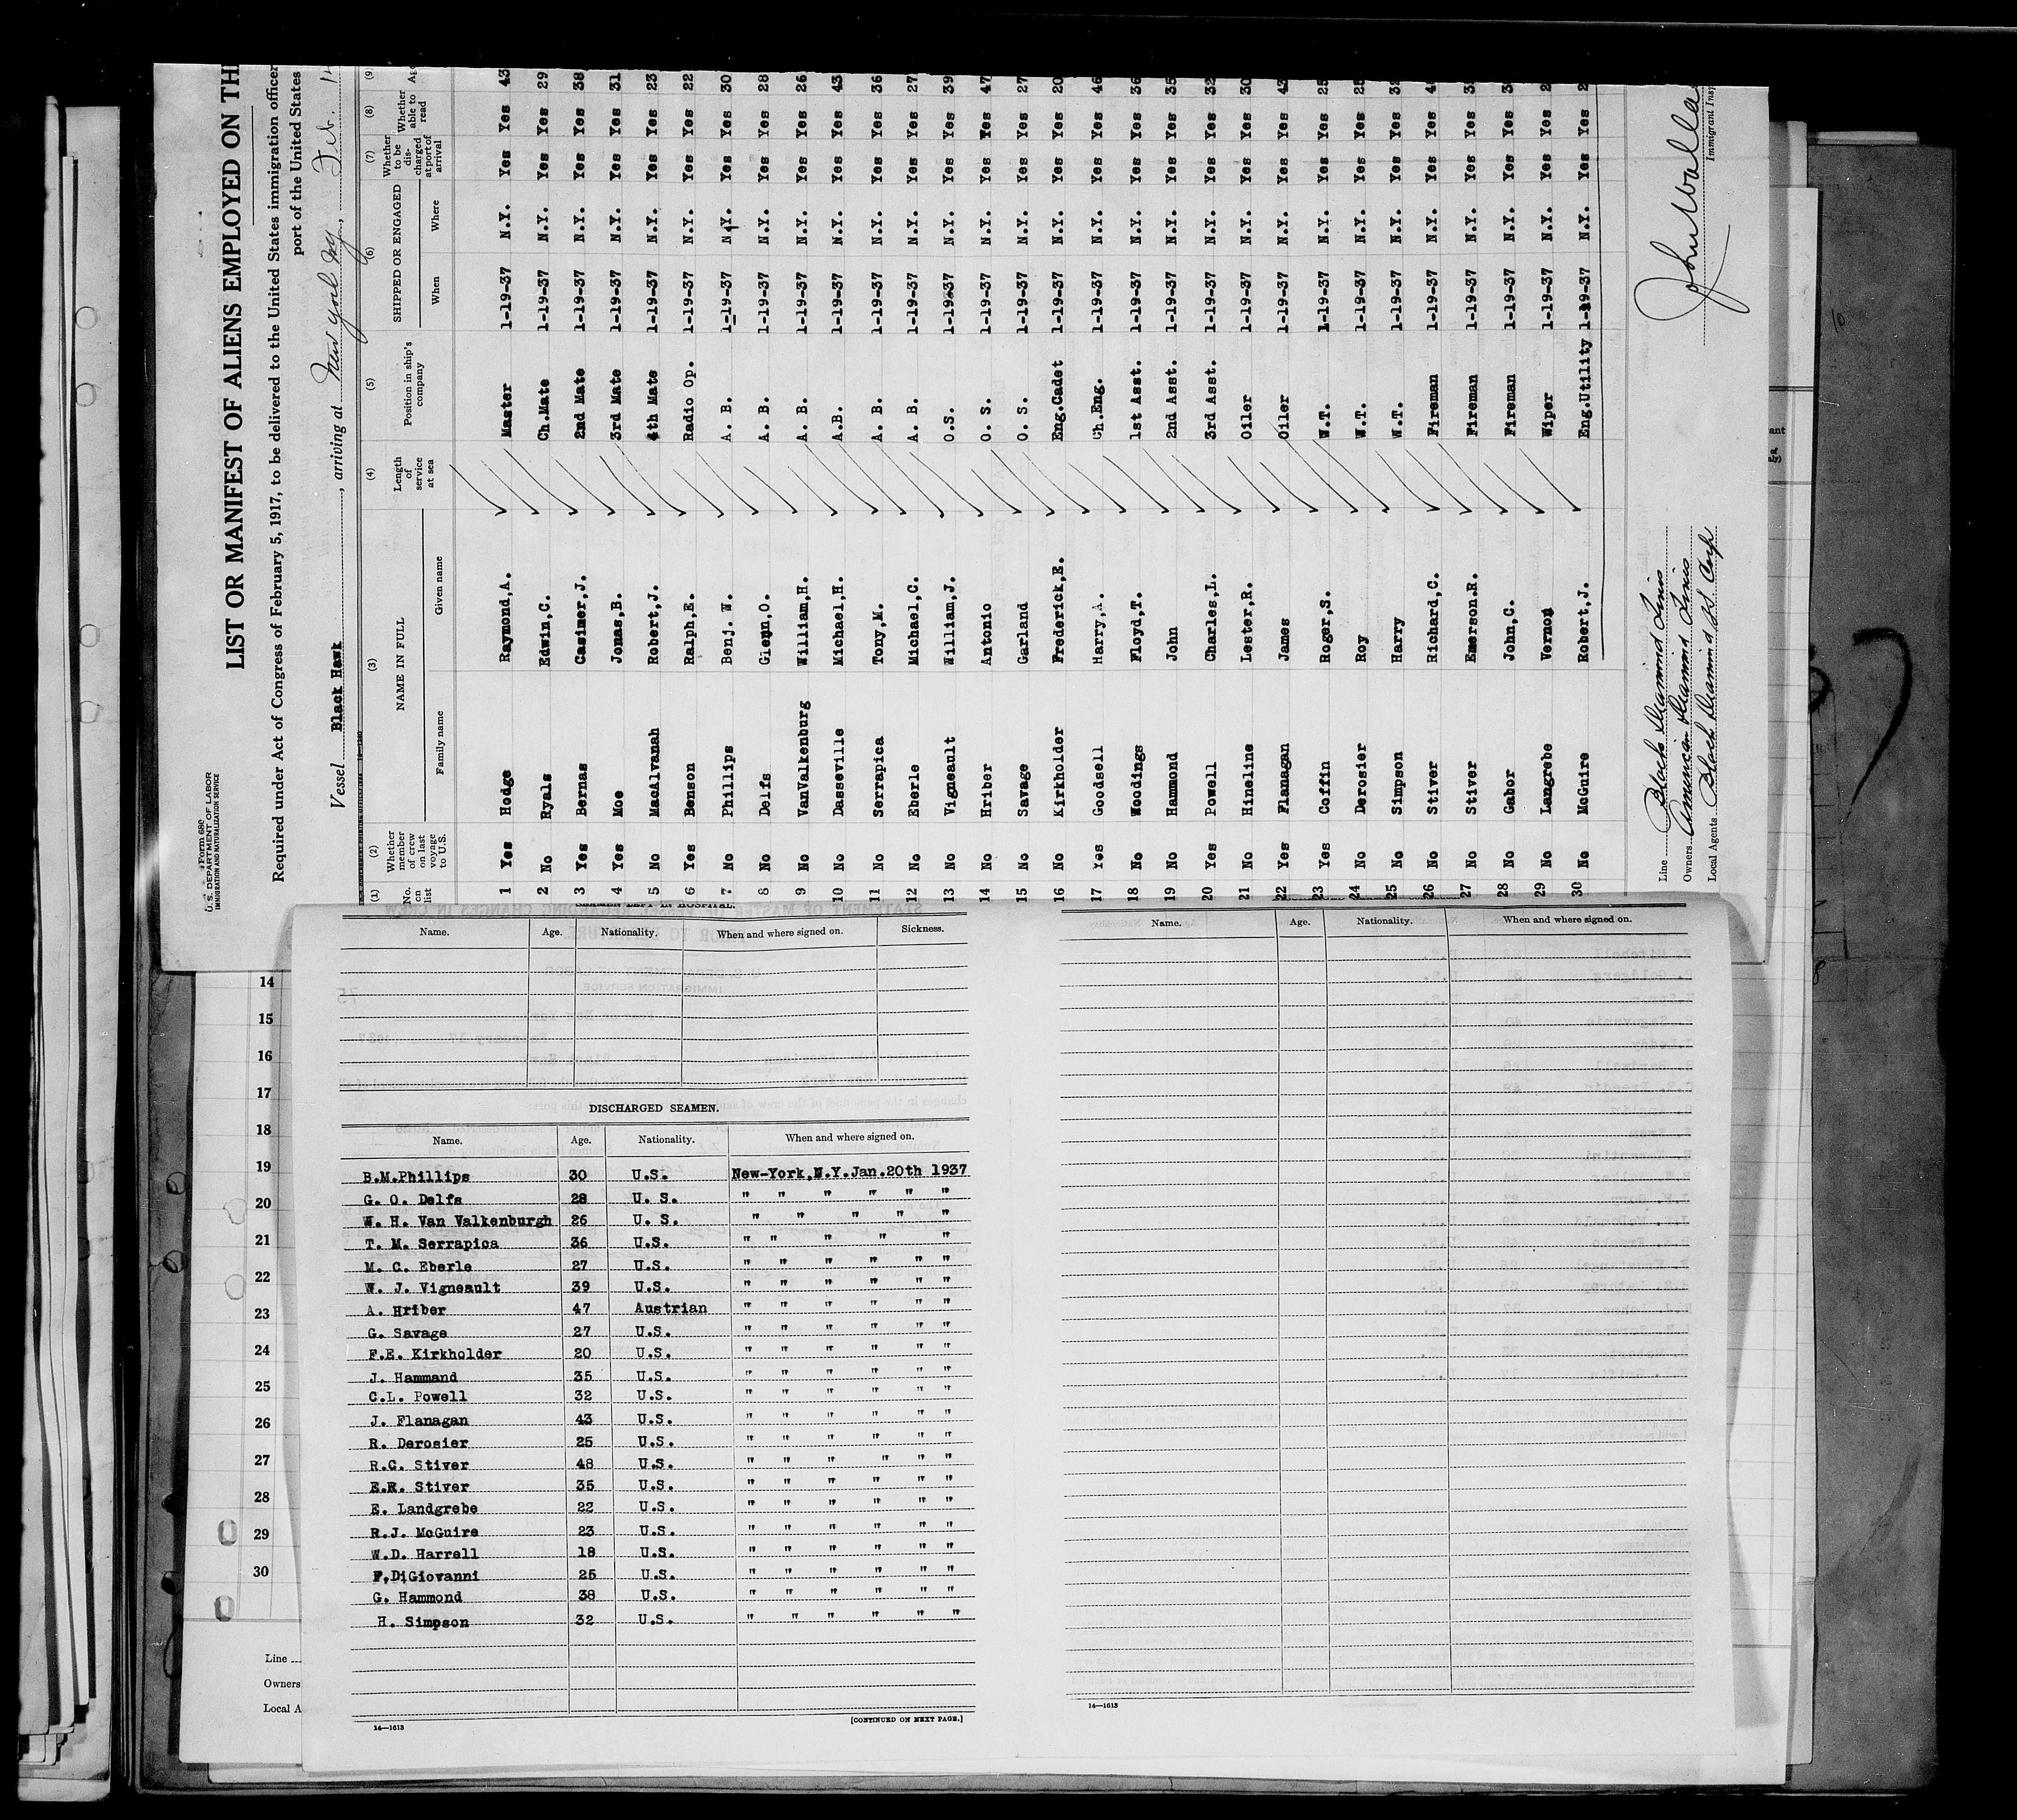 Form 680
U.S. DEPARTMENT OF LABOR
IMMIGRATION AND NATURALIZATION SERVICE
LIST OR MANIFEST OF ALIENS EMPLOYED ON TH
Required under Act of Congress of February 5, 1917, to be delivered to the United States immigration officer
port of the United States
Vessel Black Hawk, arriving at New York Ny, Feb. 14
(1) (2) (3) (4) (5) (6) (7) (8) (9)
No. on list Whether member of crew on last voyage to U.S. NAME IN FULL Length of service at sea Position in ship's company SHIPPED OR ENGAGED Whether to be discharged at port of arrival Whether able to read Age
Family name Given name When Where
1 Yes Hodge Raymond,A. Master 1-19-37 N.Y. Yes Yes 43
2 No Ryals Edwin,C. Ch.Mate 1-19-37 N.Y. Yes Yes 29
3 Yes Bernas Casimer,J. 2nd Mate 1-19-37 N.Y. Yes Yes 38
4 Yes Moe Jonas,B. 3rd Mate 1-19-37 N.Y. Yes Yes 31
5 No MacAlvanah Robert,J. 4th Mate 1-19-37 N.Y. Yes Yes 23
6 Yes Benson Ralph,E. Radio Op. 1-19-37 N.Y. Yes Yes 22
7 No Phillips Benj. W. A. B. 1-19-37 N.Y. Yes Yes 30
8 No Delfs Glenn,O. A. B. 1-19-37 N.Y. Yes Yes 28
9 No VanValkenburg William,H. A. B. 1-19-37 N.Y. Yes Yes 26
10 No Dasseville Michael,H. A.B. 1-19-37 N.Y. Yes Yes 43
11 No Serrapica Tony,M. A. B. 1-19-37 N.Y. Yes Yes 36
12 No Eberle Michael,C. A. B. 1-19-37 N.Y. Yes Yes 27
13 No Vigneault William,J. O.S. 1-19-37 N.Y. Yes Yes 39
14 No Hriber Antonio O. S. 1-19-37 N.Y. Yes Yes 47
15 No Savage Garland O. S. 1-19-37 N.Y. Yes Yes 27
16 No Kirkholder Frederick,E. Eng.Cadet 1-19-37 N.Y. Yes Yes 20
17 Yes Goodsell Harry,A. Ch.Eng. 1-19-37 N.Y. Yes Yes 46
18 No Woodings Floyd,T. 1st Asst. 1-19-37 N.Y. Yes Yes 36
19 No Hammond John 2nd Asst. 1-19-37 N.Y. Yes Yes 35
20 Yes Powell Charles,L. 3rd Asst. 1-19-37 N.Y. Yes Yes 32
21 No Hineline Lester,R. Oiler 1-19-37 N.Y. Yes Yes 30
22 Yes Flanagan James Oiler 1-19-37 N.Y. Yes Yes 43
23 Yes Coffin Roger,S. W.T. 1-19-37 N.Y. Yes Yes 25
24 No Derosier Roy W.T. 1-19-37 N.Y. Yes Yes 25
25 No Simpson Harry W.T. 1-19-37 N.Y. Yes Yes 32
26 No Stiver Richard,C. Fireman 1-19-37 N.Y. Yes Yes 4
27 No Stiver Emerson.R. Fireman 1-19-37 N.Y. Yes Yes 3
28 No Gabor John,C. Fireman 1-19-37 N.Y. Yes Yes 3
29 No Langrebe Vernon Wiper 1-19-37 N.Y. Yes Yes 2
30 No McGuire Robert,J. Eng.Utility 1-19-37 N.Y. Yes Yes 2
Line Black Diamond Lines
Owners American Diamond Lines
Local Agents Black Diamond SS Corp
John Walla
Immigrant Insp
SEAMEN LEFT IN HOSPITAL.
Name. Age. Nationality. When and where signed on. Sickness.
DISCHARGED SEAMEN.
Name. Age. Nationality. When and where signed on.
B.M.Phillips 30 U.S. New-York,N.Y.Jan.20th 1937
G. O. Delfs 28 U. S. " " " " " "
W. H. Van Valkenburgh 26 U. S. " " " " "
T. M. Serrapica 36 U.S. " " " " "
M. C. Eberle 27 U.S. " " " " " "
W. J. Vigneault 39 U.S. " " " " " "
A. Hriber 47 Austrian " " " " " "
G. Savage 27 U.S. " " " " " "
F.E. Kirkholder 20 U.S. " " " " " "
J. Hammand 35 U.S. " " " " " "
C.L. Powell 32 U.S. " " " " " "
J. Flanagan 43 U.S. " " " " " "
R. Derosier 25 U.S. " " " " " "
R.C. Stiver 48 U.S. " " " " " "
E.R. Stiver 35 U.S. " " " " " "
E. Landgrebe 22 U.S. " " " " " "
R.J. McGuire 23 U.S. " " " " " "
W.D. Harrell 18 U.S. " " " " " "
F.DiGiovanni 25 U.S. " " " " " "
G. Hammond 38 U.S. " " " " " "
H. Simpson 32 U.S. " " " " " "
14—1613
[CONTINUED ON NEXT PAGE.]
Name. Age. Nationality. When and where signed on.
14—1613
14
15
16
17
18
19
20
21
22
23
24
25
26
27
28
29
30
Line
Owners
Local A
7